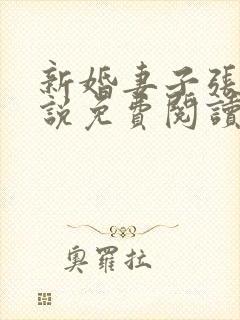 新婚妻子張
說免費閱讀
奧羅拉